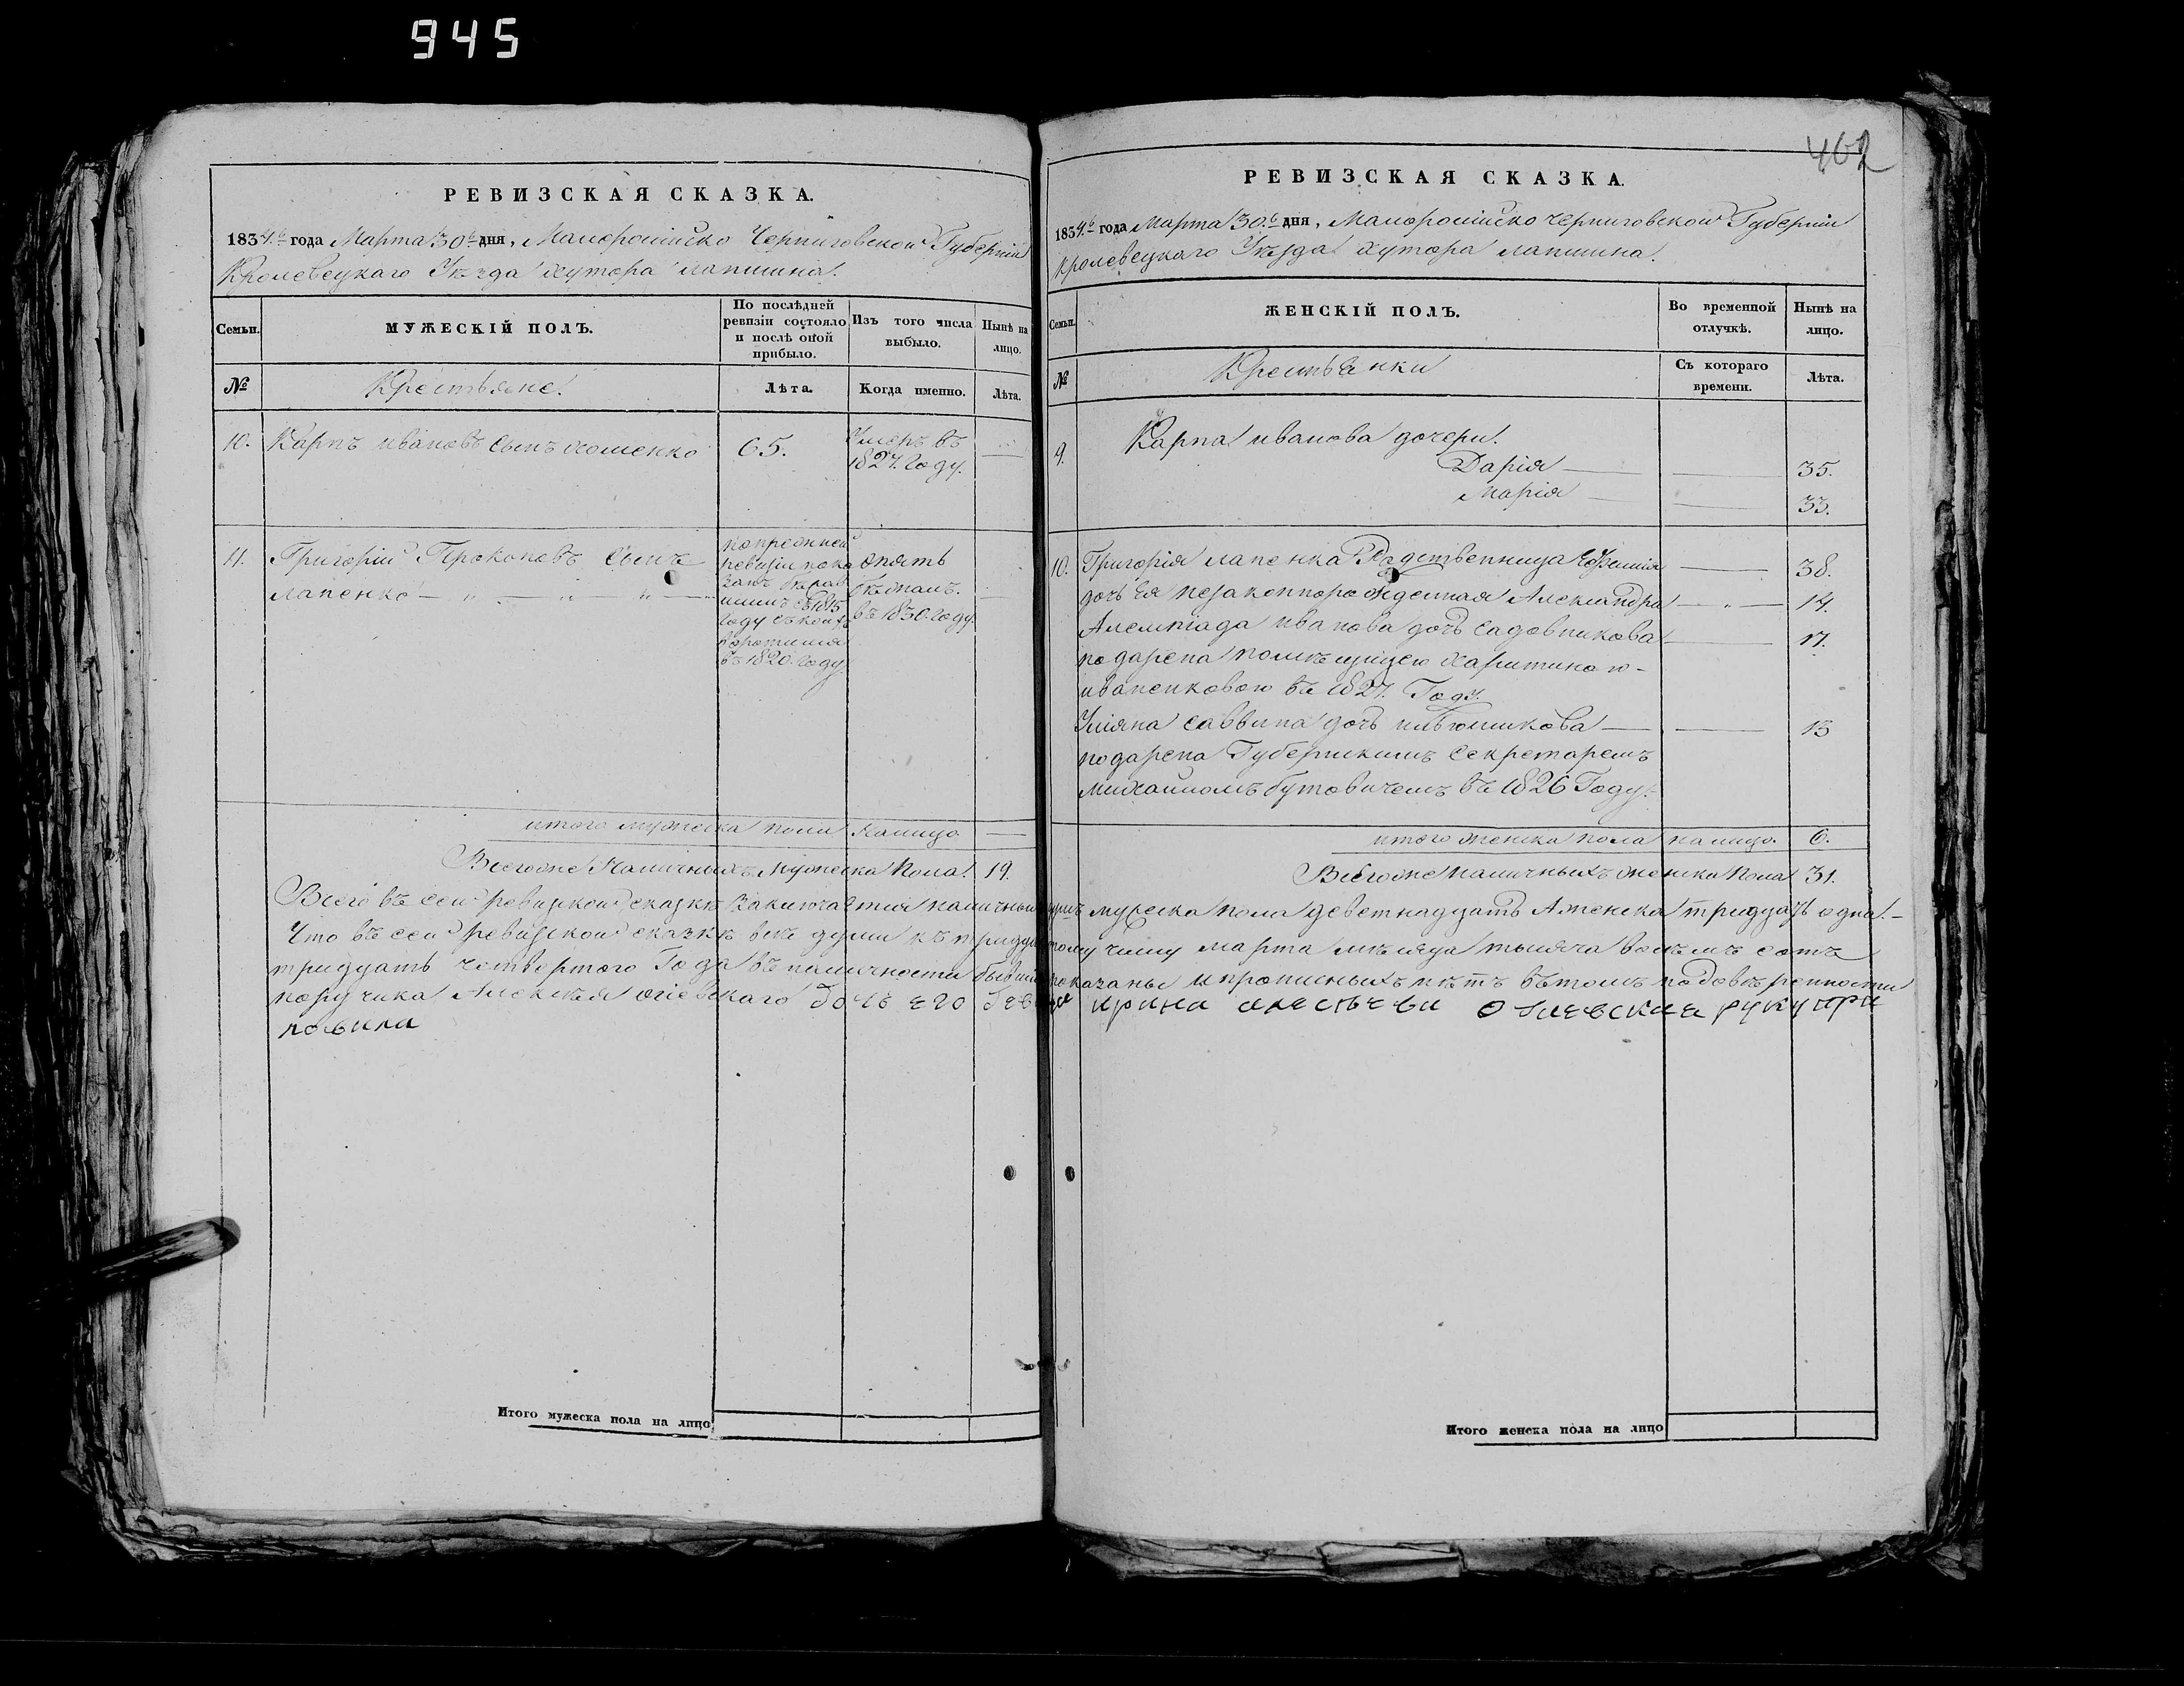 945
РЕВИЗСКАЯ СКАЗКА.
1834.го года Марта 30.го дня, Малоросійско Черниговской Губерніи
Кролевецкаго Уѣзда хутора лапшина.
Семьи.
МУЖЕСКІЙ ПОЛЪ.
По послѣдней ревизіи состояло и послѣ оной прибыло.
Изъ того числа выбыло.
Нынѣ на лицо.
№
Крестьяне.
Лѣта.
Когда именно.
Лѣта.
10. Карпъ ивановъ сынъ хоменко 65. Умеръ въ
1827. году.
11. Григорій Прокоповъ Сынъ
лапенко
попрежней
ревизіи пока
занъ бѣжав
шимъ въ 1815
году съ коихъ
воротился
въ 1820. году.
опять
бѣжалъ.
въ 1830. году.
итого мужеска пола налицо —
Всегоже Наличныхъ Мужеска Пола. 19.
462
РЕВИЗСКАЯ СКАЗКА.
1834.го года Марта 30.го дня, Малоросійско Черниговской Губерніи
Кролевецкаго Уѣзда хутора лапшина.
Семьи.
ЖЕНСКІЙ ПОЛЪ.
Во временной отлучкѣ.
Нынѣ на лицо.
№
Крестьянки
Съ котораго времени.
Лѣта.
9. Карпа иванова дочери.
Дарія 35.
Марія 33.
10. Григорія лапенка Радственница Ефимія 38.
дочь Ея незаконнорожденная Александра 14.
Алемпіада иванова дочь садовникова 17.
подарена помѣщицею харитиною
иваненковою въ 1827. Году.
Уліяна саввина дочь 13
подарена Губернскимъ Секретаремъ
михаиломъ бутовичемъ въ 1826 Году.
итого женска пола налицо. 6.
Всегоже наличныхъ женска Пола 31.
Всего въ сей ревизской сказкѣ Заключается наличныхъ душъ мужеска пола деветнадцать Аженска тридцать одна.
Что въ сей ревизской сказкѣ всѣ души къ тридцатому числу марта мѣсяца тысяча восѣмъ сотъ
тридцать четвертого Года въ наличности бывшие показаны ипрописныхъ нѣтъ вътомъ подовѣренности
поручика Алексѣя огіевскаго дочь его Ирина Огиевская руку при
ложила
Итого мужеска пола на лицо
Итого женска пола на лицо